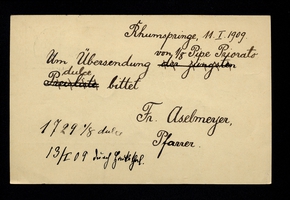 Rhumspringe, 11. I. 1909
von 1/8 Pipe Pajarato
Um Übersendung der jüngsten
dulce
Preisliste bittet
Fr. Aselmeyer,
Pfarrer.
1729 1/8 dulce
13/I 09 durch